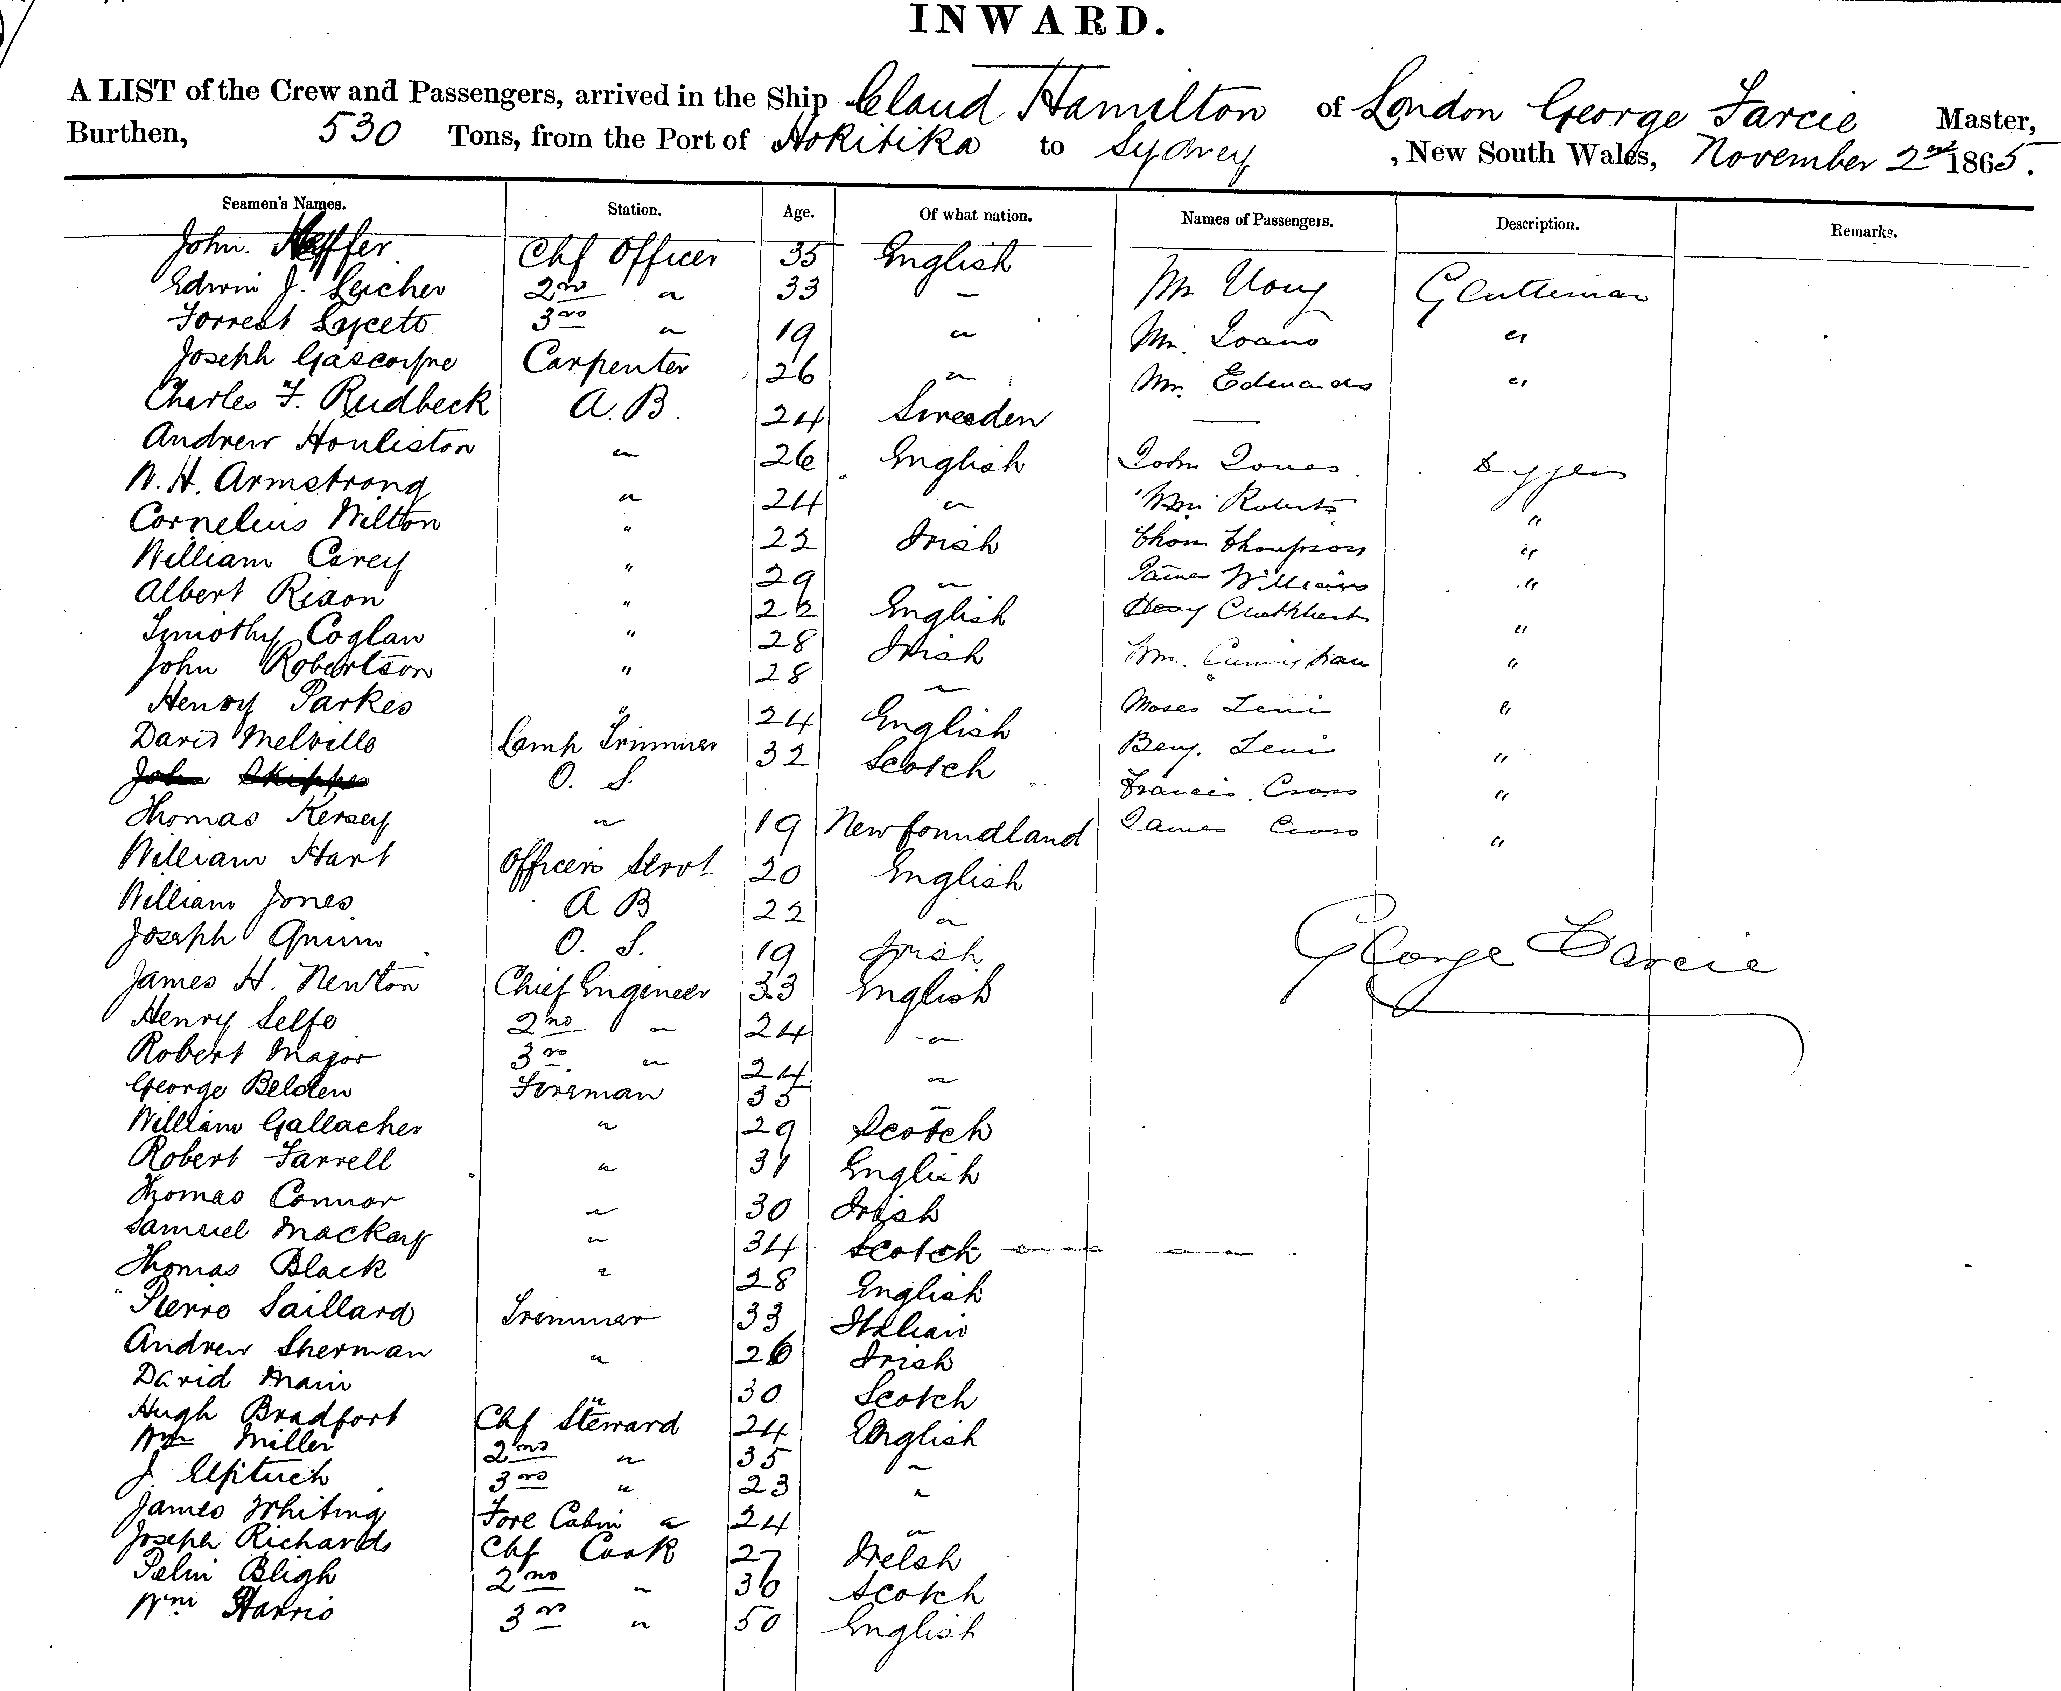 INWARD.
A LIST of the Crew and Passengers, arrived in the Ship Claud Hamilton of London George Farcie Master,
Burthen, 530 Tons, from the Port of Hokitika to Sydney, New South Wales, November 2nd 1865.
Seamen's Names. Station. Age. Of what nation. Names of Passengers. Description. Remarks.
John Chf Officer 35 English Mr Gentleman
Edwin J. 2nd " 33 "
Forrest 3rd " 19 " Mr. "
Joseph Gascoigne Carpenter 26 " Mr. Edwards "
Charles F. Rudbeck A.B. 24 Sweeden
Andrew Houliston " 26 English John Jones
W. H. Armstrong " 24 " Wm. Roberts "
Cornelius Wilton " 22 Irish Thom Thompson "
William Carey " 29 " James Williams "
Albert Rixon " 22 English Cuthbert "
Timothy Coglan " 28 Irish Wm. "
John Robertson " 28 "
Henry Parkes " 24 English Moses Levi "
David Melville Lamp Trimmer 32 Scotch Benj. Levi "
John Skipper O. S. Francis Cross "
Thomas Kersey " 19 Newfoundland James Cross "
William Hart Officers Servt 20 English
William Jones A B 22 "
Joseph Quinn O. S. 19 Irish
George Farcie
James H. Newton Chief Engineer 33 English
Henry Selfe 2nd " 24 "
Robert Major 3rd " 24 "
George Belden Fireman 35 "
William Gallacher " 29 Scotch
Robert Farrell " 31 English
Thomas Connor " 30 Irish
Samuel Mackay " 34 Scotch
Thomas Black " 28 English
Pierro Saillard Trimmer 33 Italian
Andrew Sherman " 26 Irish
David Main " 30 Scotch
Hugh Bradfort Chf Steward 24 English
Wm Miller 2nd " 35 "
J. 3rd " 23 "
James Whiting Fore Cabin " 24 "
Joseph Richards Chf Cook 27 Welsh
Bligh 2nd " 36 Scotch
Wm Harris 3rd " 50 English